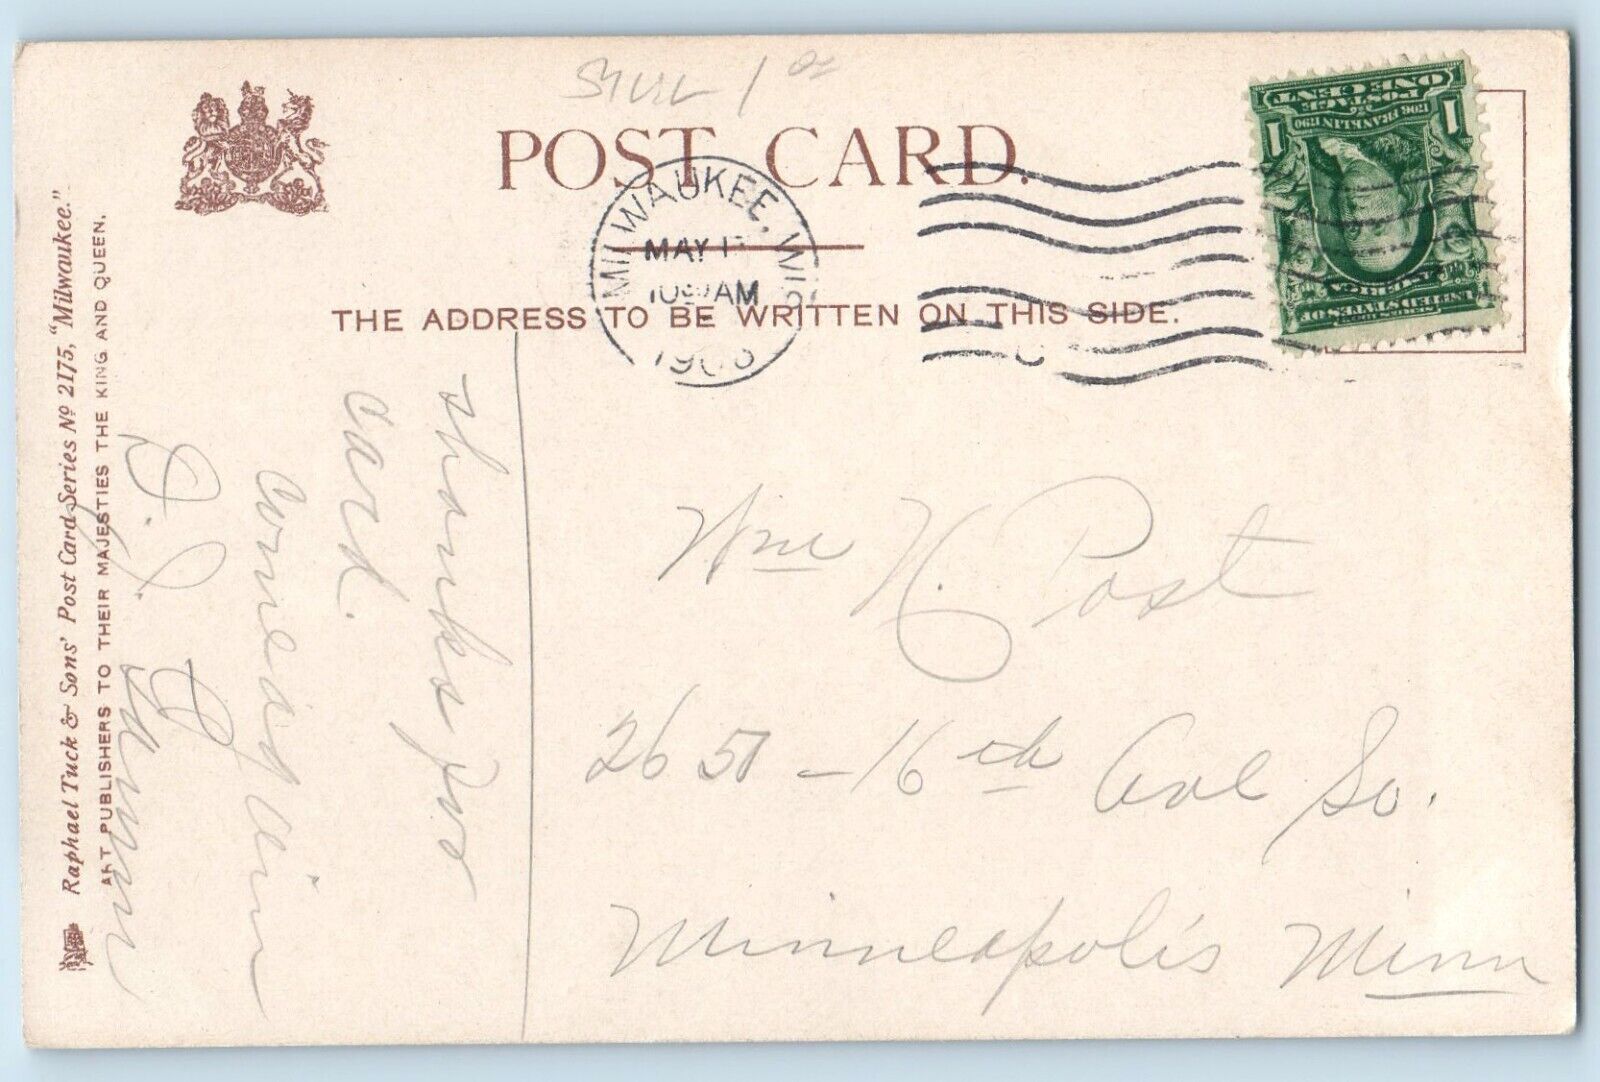 POST CARD.
MILWAUKEE, WIS
MAY 1
AM
THE ADDRESS TO BE WRITTEN ON THIS SIDE.
POSTAGE
ONE CENT
1 1
1706 FRANKLIN 1790
SERIES 1902
UNITED STATES OF
AMERICA
Raphael Tuck & Sons' Post Card Series No 2175, "Milwaukee."
ART PUBLISHERS TO THEIR MAJESTIES THE KING AND QUEEN.
thanks for
card.
come again
Wm H. Post
2650 - 16th Ave So.
Minneapolis Minn